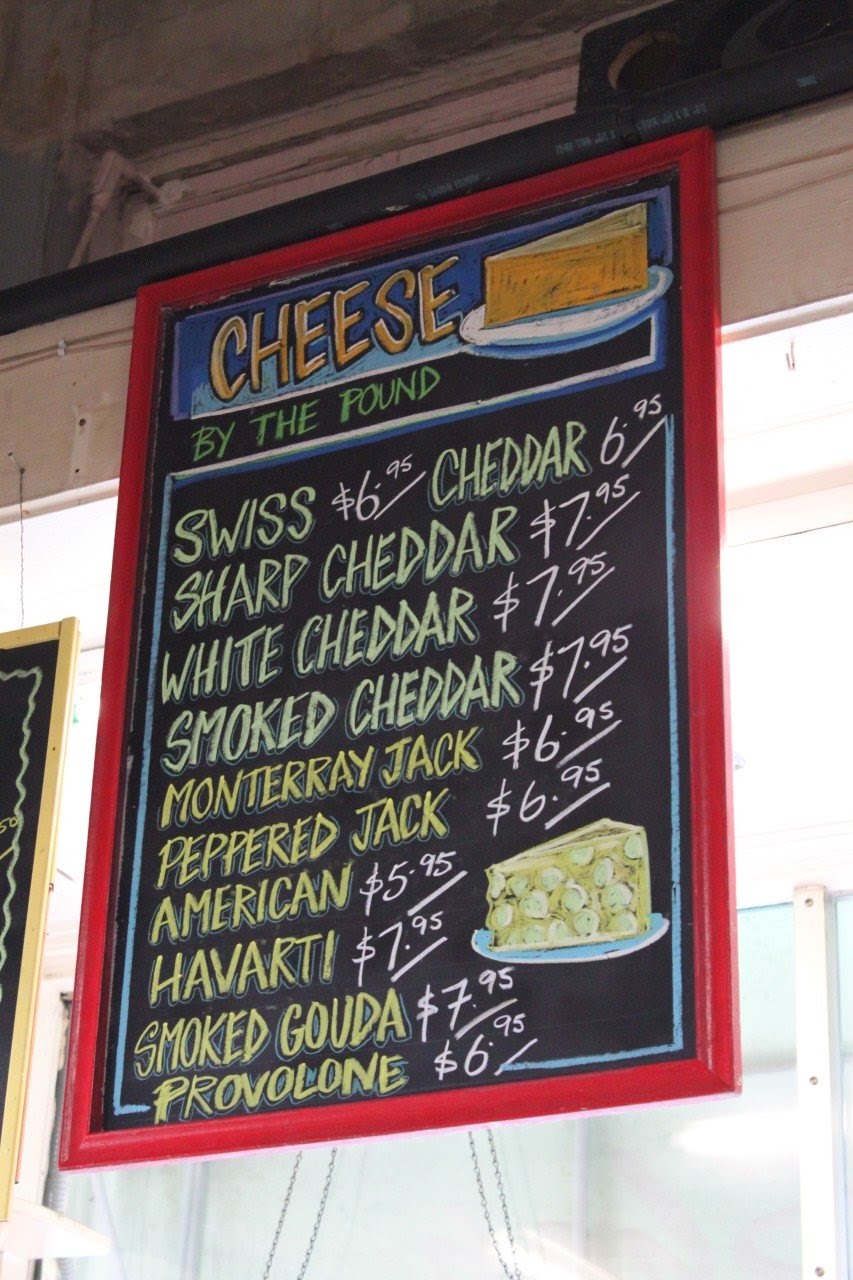 CHEESE
BY THE POUND
SWISS $6.95 CHEDDAR 6.95
SHARP CHEDDAR $7.95
WHITE CHEDDAR $7.95
SMOKED CHEDDAR $7.95
MONTERRAY JACK $6.95
PEPPERED JACK $6.95
AMERICAN $5.95
HAVARTI $7.95
SMOKED GOUDA $7.95
PROVOLONE $6.95